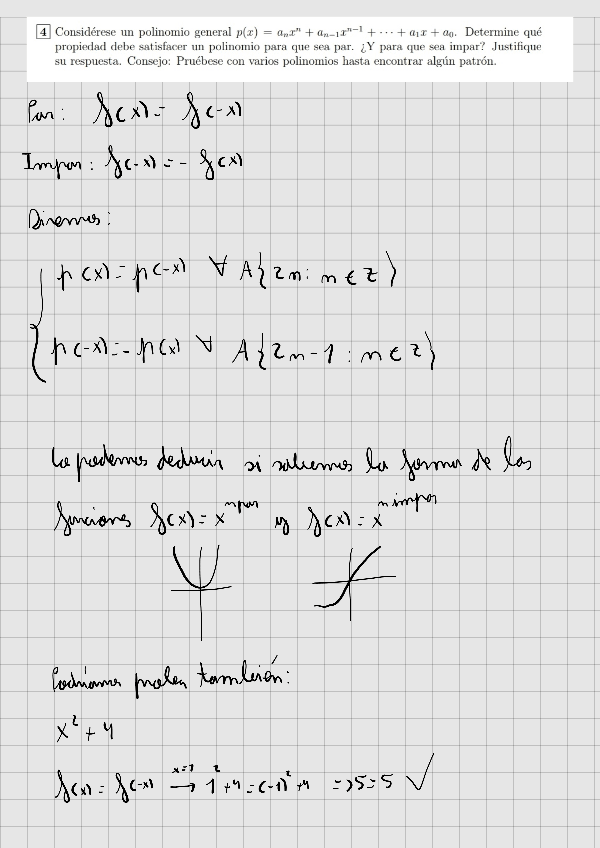 4 Considérese un polinomio general p(x) = aₙxⁿ + aₙ₋₁xⁿ⁻¹ + ··· + a₁x + a₀. Determine qué
propiedad debe satisfacer un polinomio para que sea par. ¿Y para que sea impar? Justifique
su respuesta. Consejo: Pruébese con varios polinomios hasta encontrar algún patrón.
Par: f(x) = f(-x)
Impar: f(-x) = - f(x)
Diremos:
p(x) = p(-x) ∀ A{2n: n ∈ Z}
p(-x) = -p(x) ∀ A{2n-1: n ∈ Z}
Lo podemos deducir si sabemos la forma de las
funciones f(x) = x^n par y f(x) = x^n impar
Podríamos probar también:
x² + 4
f(x) = f(-x) x=1 → 1² + 4 = (-1)² + 4 => 5 = 5 ✓